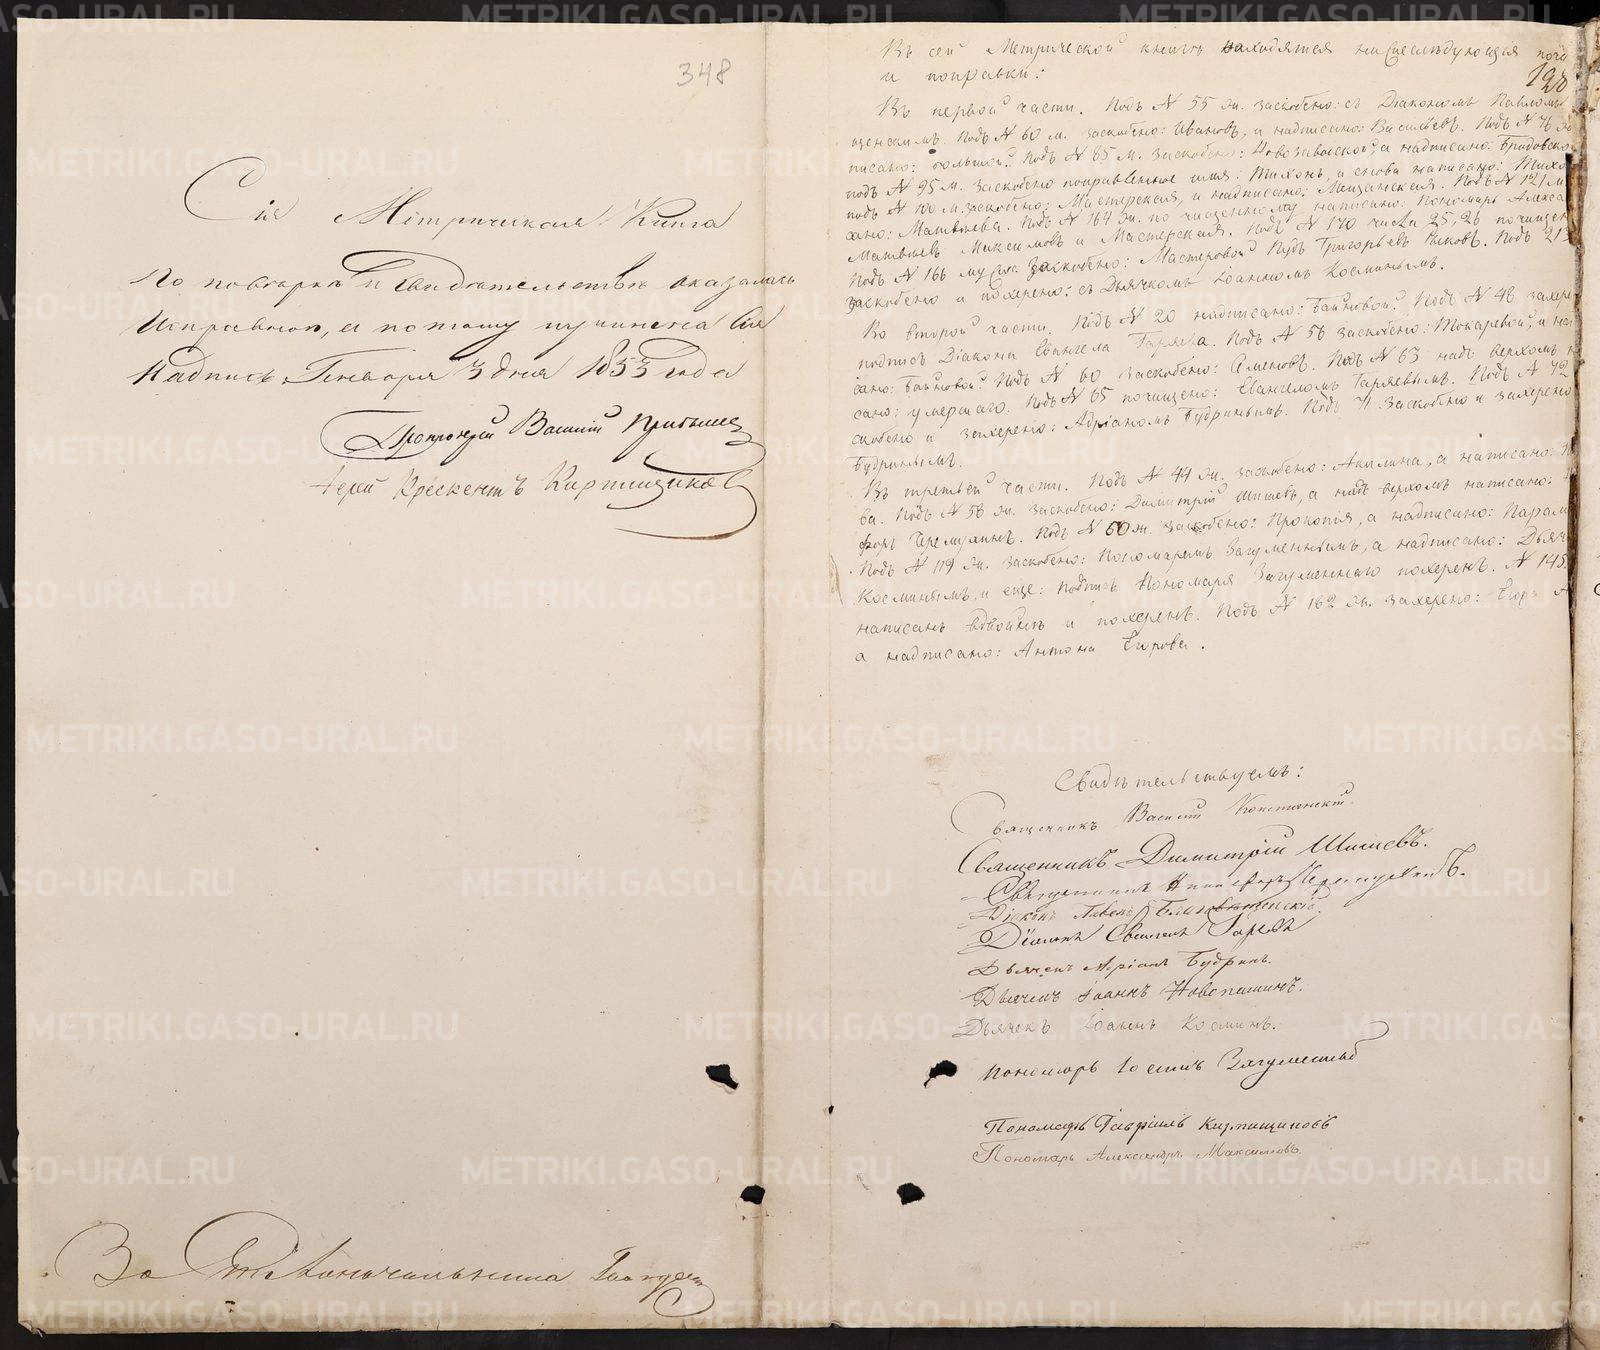 348
Сія Метрическая Книга
По поверкѣ и свидѣтельствѣ оказалась
Исправною, а потому учинена сія
Надпись, Генваря 3 дня 1853 года
Протоіерей Василій
Іерей Крескентъ Кирпищиковъ
За
Въ сей Метрической книгѣ находятся нижеслѣдующія
и поправки:
Въ первой части. Подъ № 55 ж. заскоблено: съ Діакономъ Павломъ
Подъ № 60 м. заскоблено: Ивановъ, и надписано: Васильевъ. Подъ № 76
писано: большой. Подъ № 85 м. заскоблено: а надписано:
подъ № 95 м. заскоблено поправленное имя: Тихонъ, и снова написано: Тихо
подъ № 100 м. заскоблено: Мастерская, и надписано: Мещанская. Подъ № 121 м.
зано: Матвѣева. Подъ № 164 ж. по чищенному написано: Пономарь Алекса
Матвѣевъ Максимовъ и Мастерская. Подъ № 170 числа 25, 26 почищен
Подъ № 166 заскоблено: Мастеровой Григорьевъ Подъ 21
заскоблено и похерено: съ Дьячкомъ Іоанномъ Косминымъ.
Во второй части. Подъ № 20 надписано: Баиновой. Подъ № 48 захере
подпись Діакона Евангела Гаряева. Подъ № 58 заскоблено: Токаревой, и на
сано: Баиновой. Подъ № 60 заскоблено: Подъ № 63 надъ верхомъ
сано: умершаго. Подъ № 65 почищено: Евангеломъ Гаряевымъ. Подъ № 72
скоблено и захерено: Адріаномъ Будринымъ. Подъ 71. Заскоблено и захерено
Будринымъ.
Въ третьей части. Подъ № 44 ж. заскоблено: Акилина, а написано:
ва. Подъ № 58 ж. заскоблено: Димитрій Шишевъ, а надъ верхомъ написано:
форъ Черемухинъ. Подъ № 60 ж. заскоблено: Прокопія, а надписано: Парам
Подъ № 119 ж. заскоблено: Пономаремъ Загуменнымъ, а надписано: Дьяч
Косминымъ, и еще: подпись Пономаря Загуменнаго похеренъ. № 145
написанъ вдвойнѣ и похеренъ. Подъ № 162 ж. захерено:
а надписано: Антона Егрова.
Свидѣтельствуемъ:
Священникъ Василій Константскій
Священникъ Димитрій Шишевъ.
Священникъ Никифоръ Черемухинъ.
Діаконъ Павелъ Благовѣщенскій.
Діаконъ Евангелъ Гаряевъ
Дьячекъ Адріанъ Будринъ.
Дьячекъ Іоаннъ Новопашинъ.
Дьячекъ Іоаннъ Косминъ.
Пономарь Загуменный
Пономарь Гавріилъ Кирпищиковъ
Пономарь Александръ Максимовъ.
METRIKI.GASO-URAL.RU